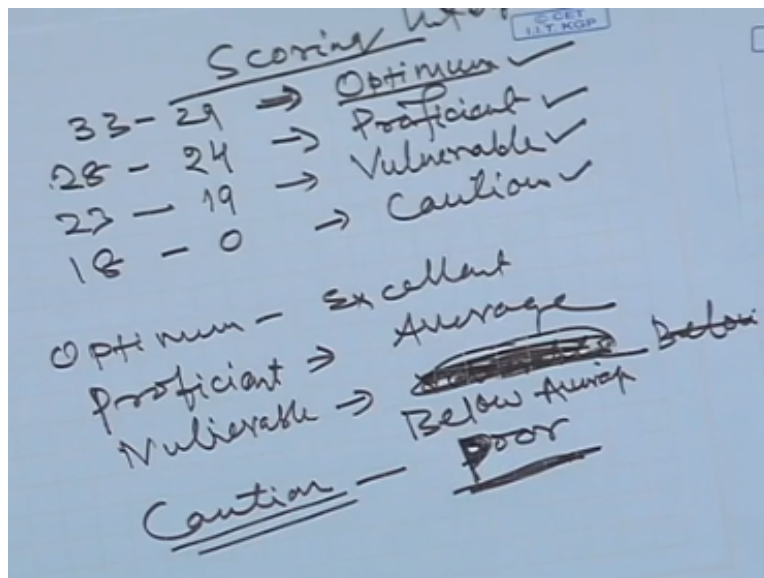 Scoring
© CET
I.I.T. KGP
33 - 29 → Optimum ✓
28 - 24 → Proficient ✓
23 - 19 → Vulnerable ✓
18 - 0 → Caution ✓
Optimum - Excellent
Proficient → Average
Vulnerable → Below
Below Averag
Caution - Poor